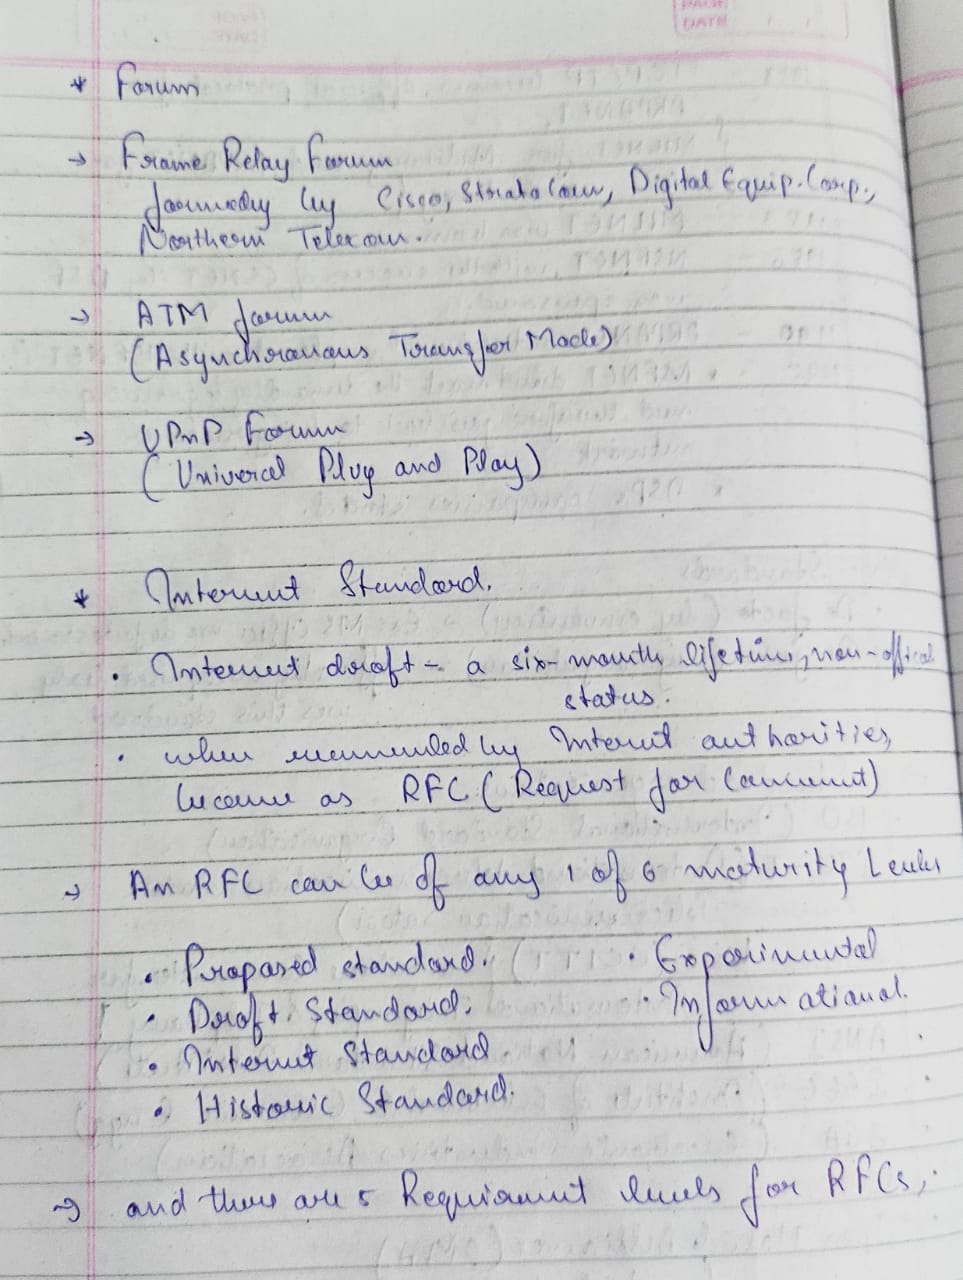 PAGE
DATE
* Forum
→ Frame Relay Forum
formedby by Cisco, Strata Com, Digital Equip. Corp.,
Northern Telecom.
→ ATM forum
(Asynchronous Transfer Mode)
→ UPnP Forum
(Univercal Plug and Play)
* Internet Standard.
• Internet draft - a six-month lifetime, non-offical
status.
• when recommended by Internet authorities,
become as RFC (Request for Comment)
→ An RFC can be of any 1 of 6 maturity Levels
• Proposed standard. • Experimental
• Draft. Standard. • Informational.
• Internet Standard.
• Historic Standard.
→ and there are 5 Requirement levels for RFCs;